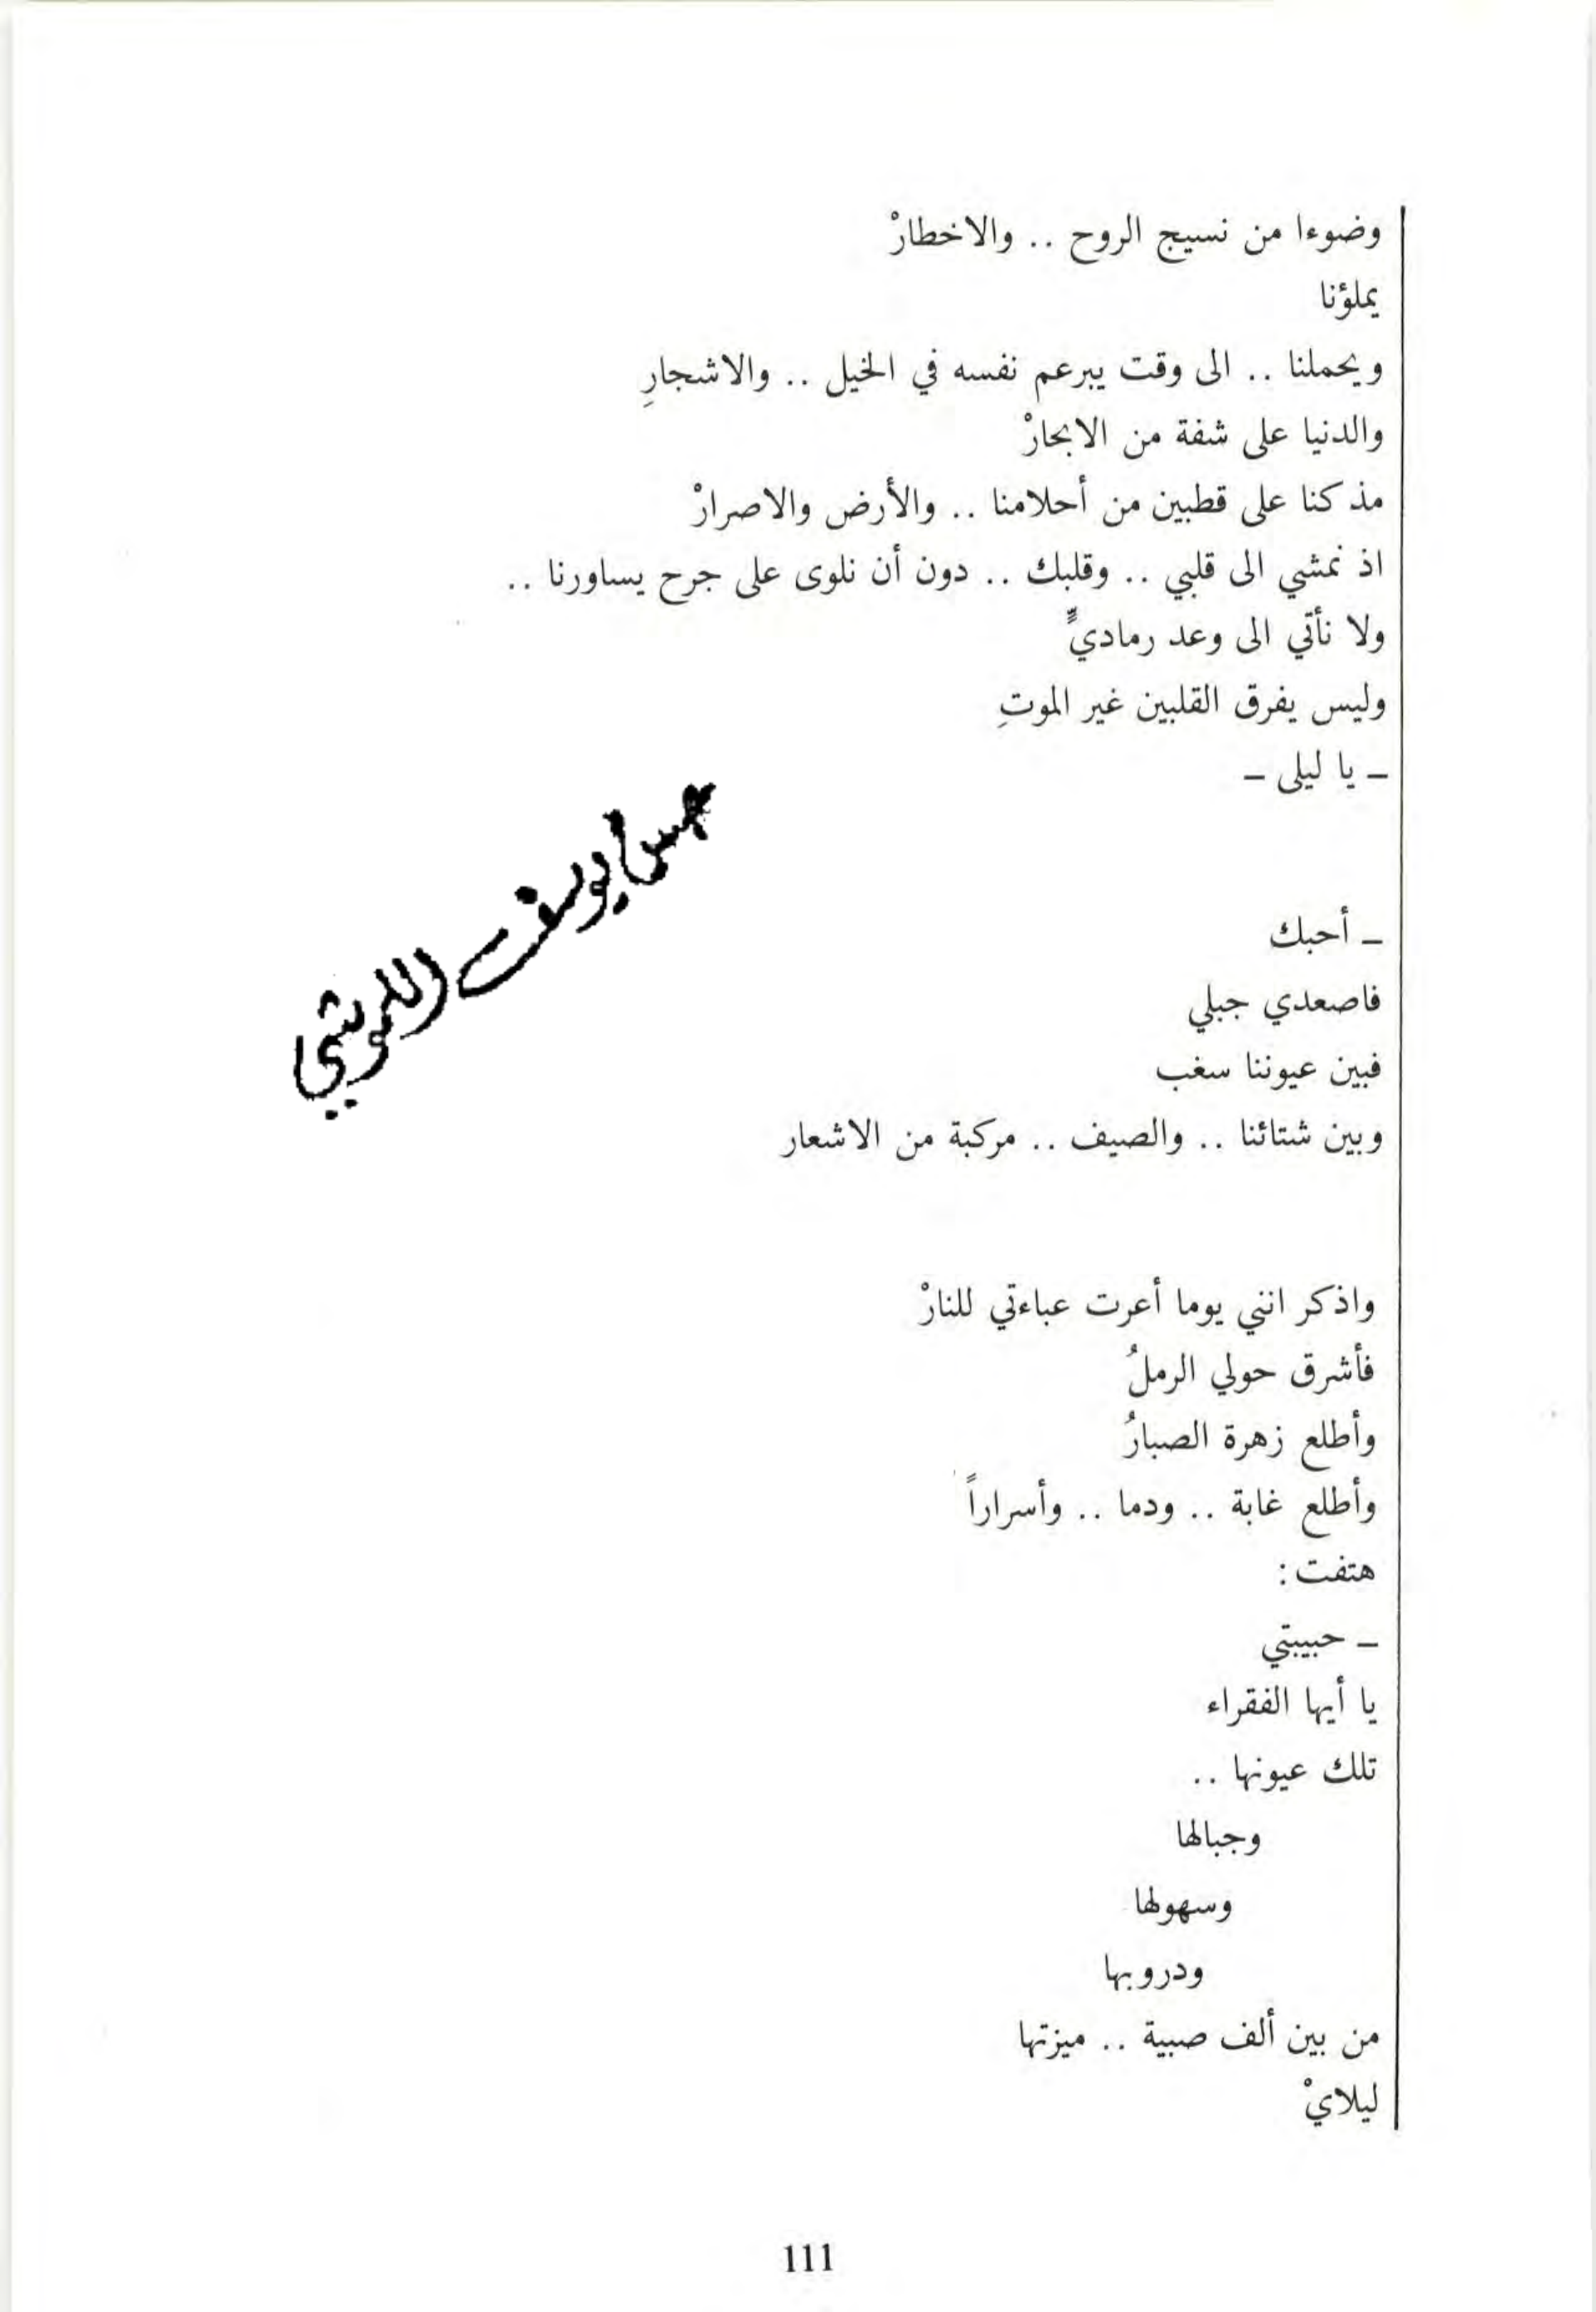 وضوءا من نسيج الروح .. والاخطارْ
يملؤنا
ويحملنا .. الى وقت يبرعم نفسه في الخيل .. والاشجارِ
والدنيا على شفة من الابحارْ
مذ كنا على قطبين من أحلامنا .. والأرض والاصرارْ
اذ نمشي الى قلبي .. وقلبك .. دون أن نلوى على جرح يساورنا ..
ولا نأتي الى وعد رماديٍّ
وليس يفرق القلبين غير الموتِ
ـ يا ليلى ـ
ـ أحبك
فاصعدي جبلي
فبين عيوننا سغب
وبين شتائنا .. والصيف .. مركبة من الاشعار
واذكر انني يوما أعرت عباءتي للنارْ
فأشرق حولي الرملُ
وأطلع زهرة الصبارُ
وأطلع غابة .. ودما .. وأسراراً
هتفت :
ـ حبيبتي
يا أيها الفقراء
تلك عيونها ..
وجبالها
وسهولها
ودروبها
من بين ألف صبية .. ميزتها
ليلايْ
111